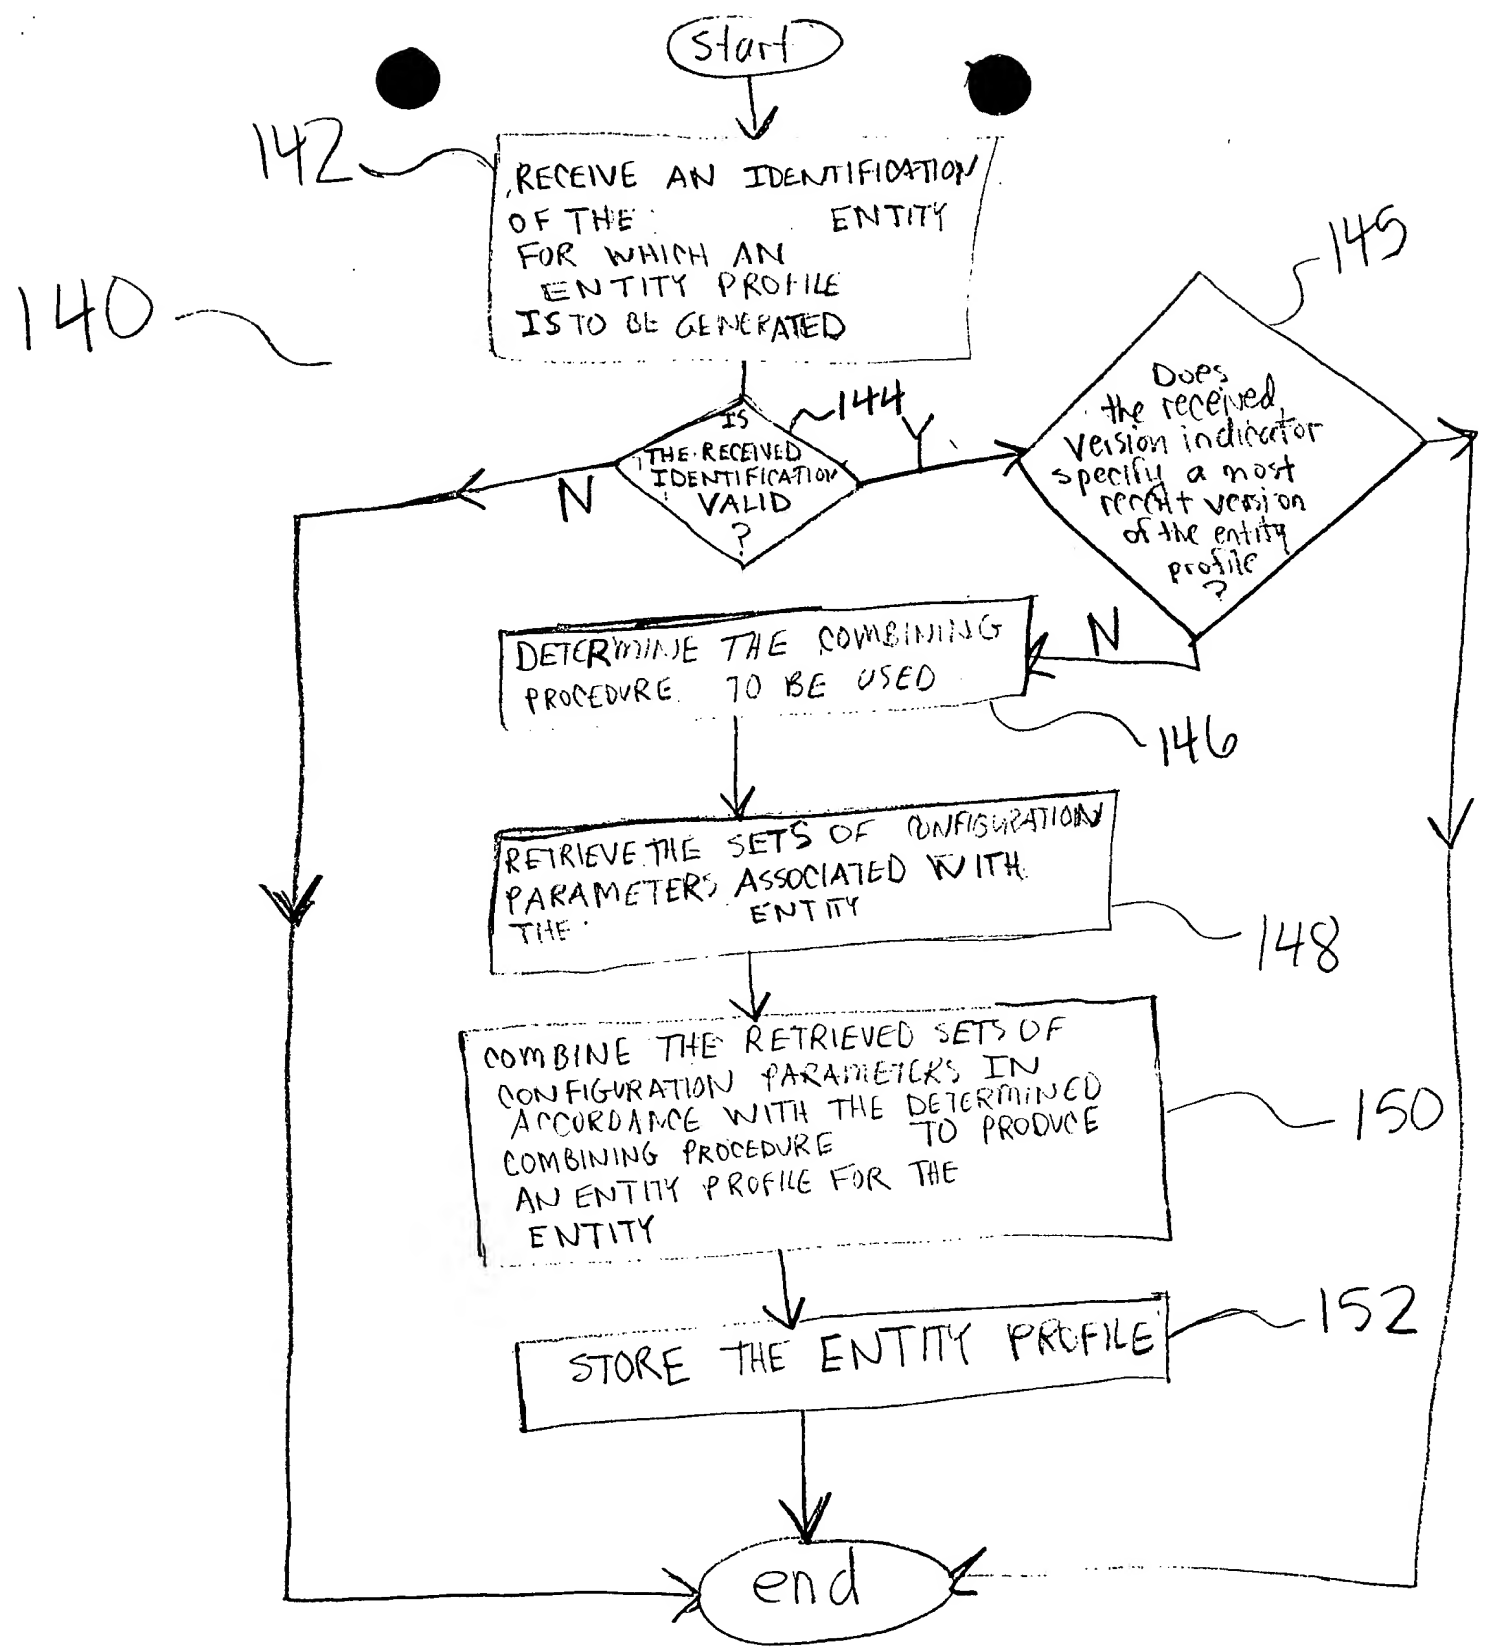 start
142
RECEIVE AN IDENTIFICATION
OF THE ENTITY
FOR WHICH AN
ENTITY PROFILE
IS TO BE GENERATED
140
145
144
IS
THE RECEIVED
IDENTIFICATION
VALID
?
N
Y
Does
the received
version indicator
specify a most
recent version
of the entity
profile
?
N
DETERMINE THE COMBINING
PROCEDURE TO BE USED
146
RETRIEVE THE SETS OF CONFIGURATION
PARAMETERS ASSOCIATED WITH
THE ENTITY
148
COMBINE THE RETRIEVED SETS OF
CONFIGURATION PARAMETERS IN
ACCORDANCE WITH THE DETERMINED
COMBINING PROCEDURE TO PRODUCE
AN ENTITY PROFILE FOR THE
ENTITY
150
STORE THE ENTITY PROFILE
152
end